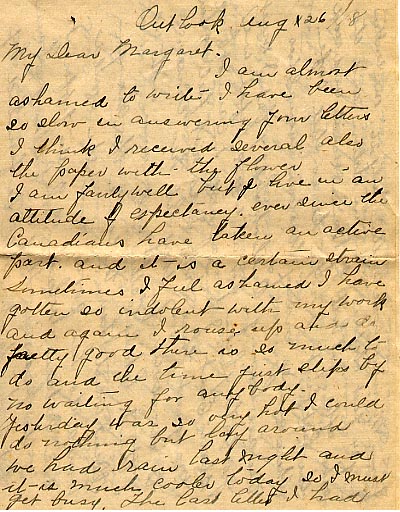 Outlook Aug 26/18
My Dear Margaret.
I am almost
ashamed to write I have been
so slow in answering your letters
I think I received several also
the paper with the flower
I am fairly well but I live in an
attitude of expectancy. ever since the
Canadians have taken an active
part. and it is a certain strain
Sometimes I feel ashamed I have
gotten so indolent with my work
and again I rouse up and do
pretty good there is so much to
do and the time just slips by
no waiting for anybody.
Yesterday was so very hot I could
do nothing but lay around
we had rain last night and
it is much cooler today so I must
get busy. The last letter I had